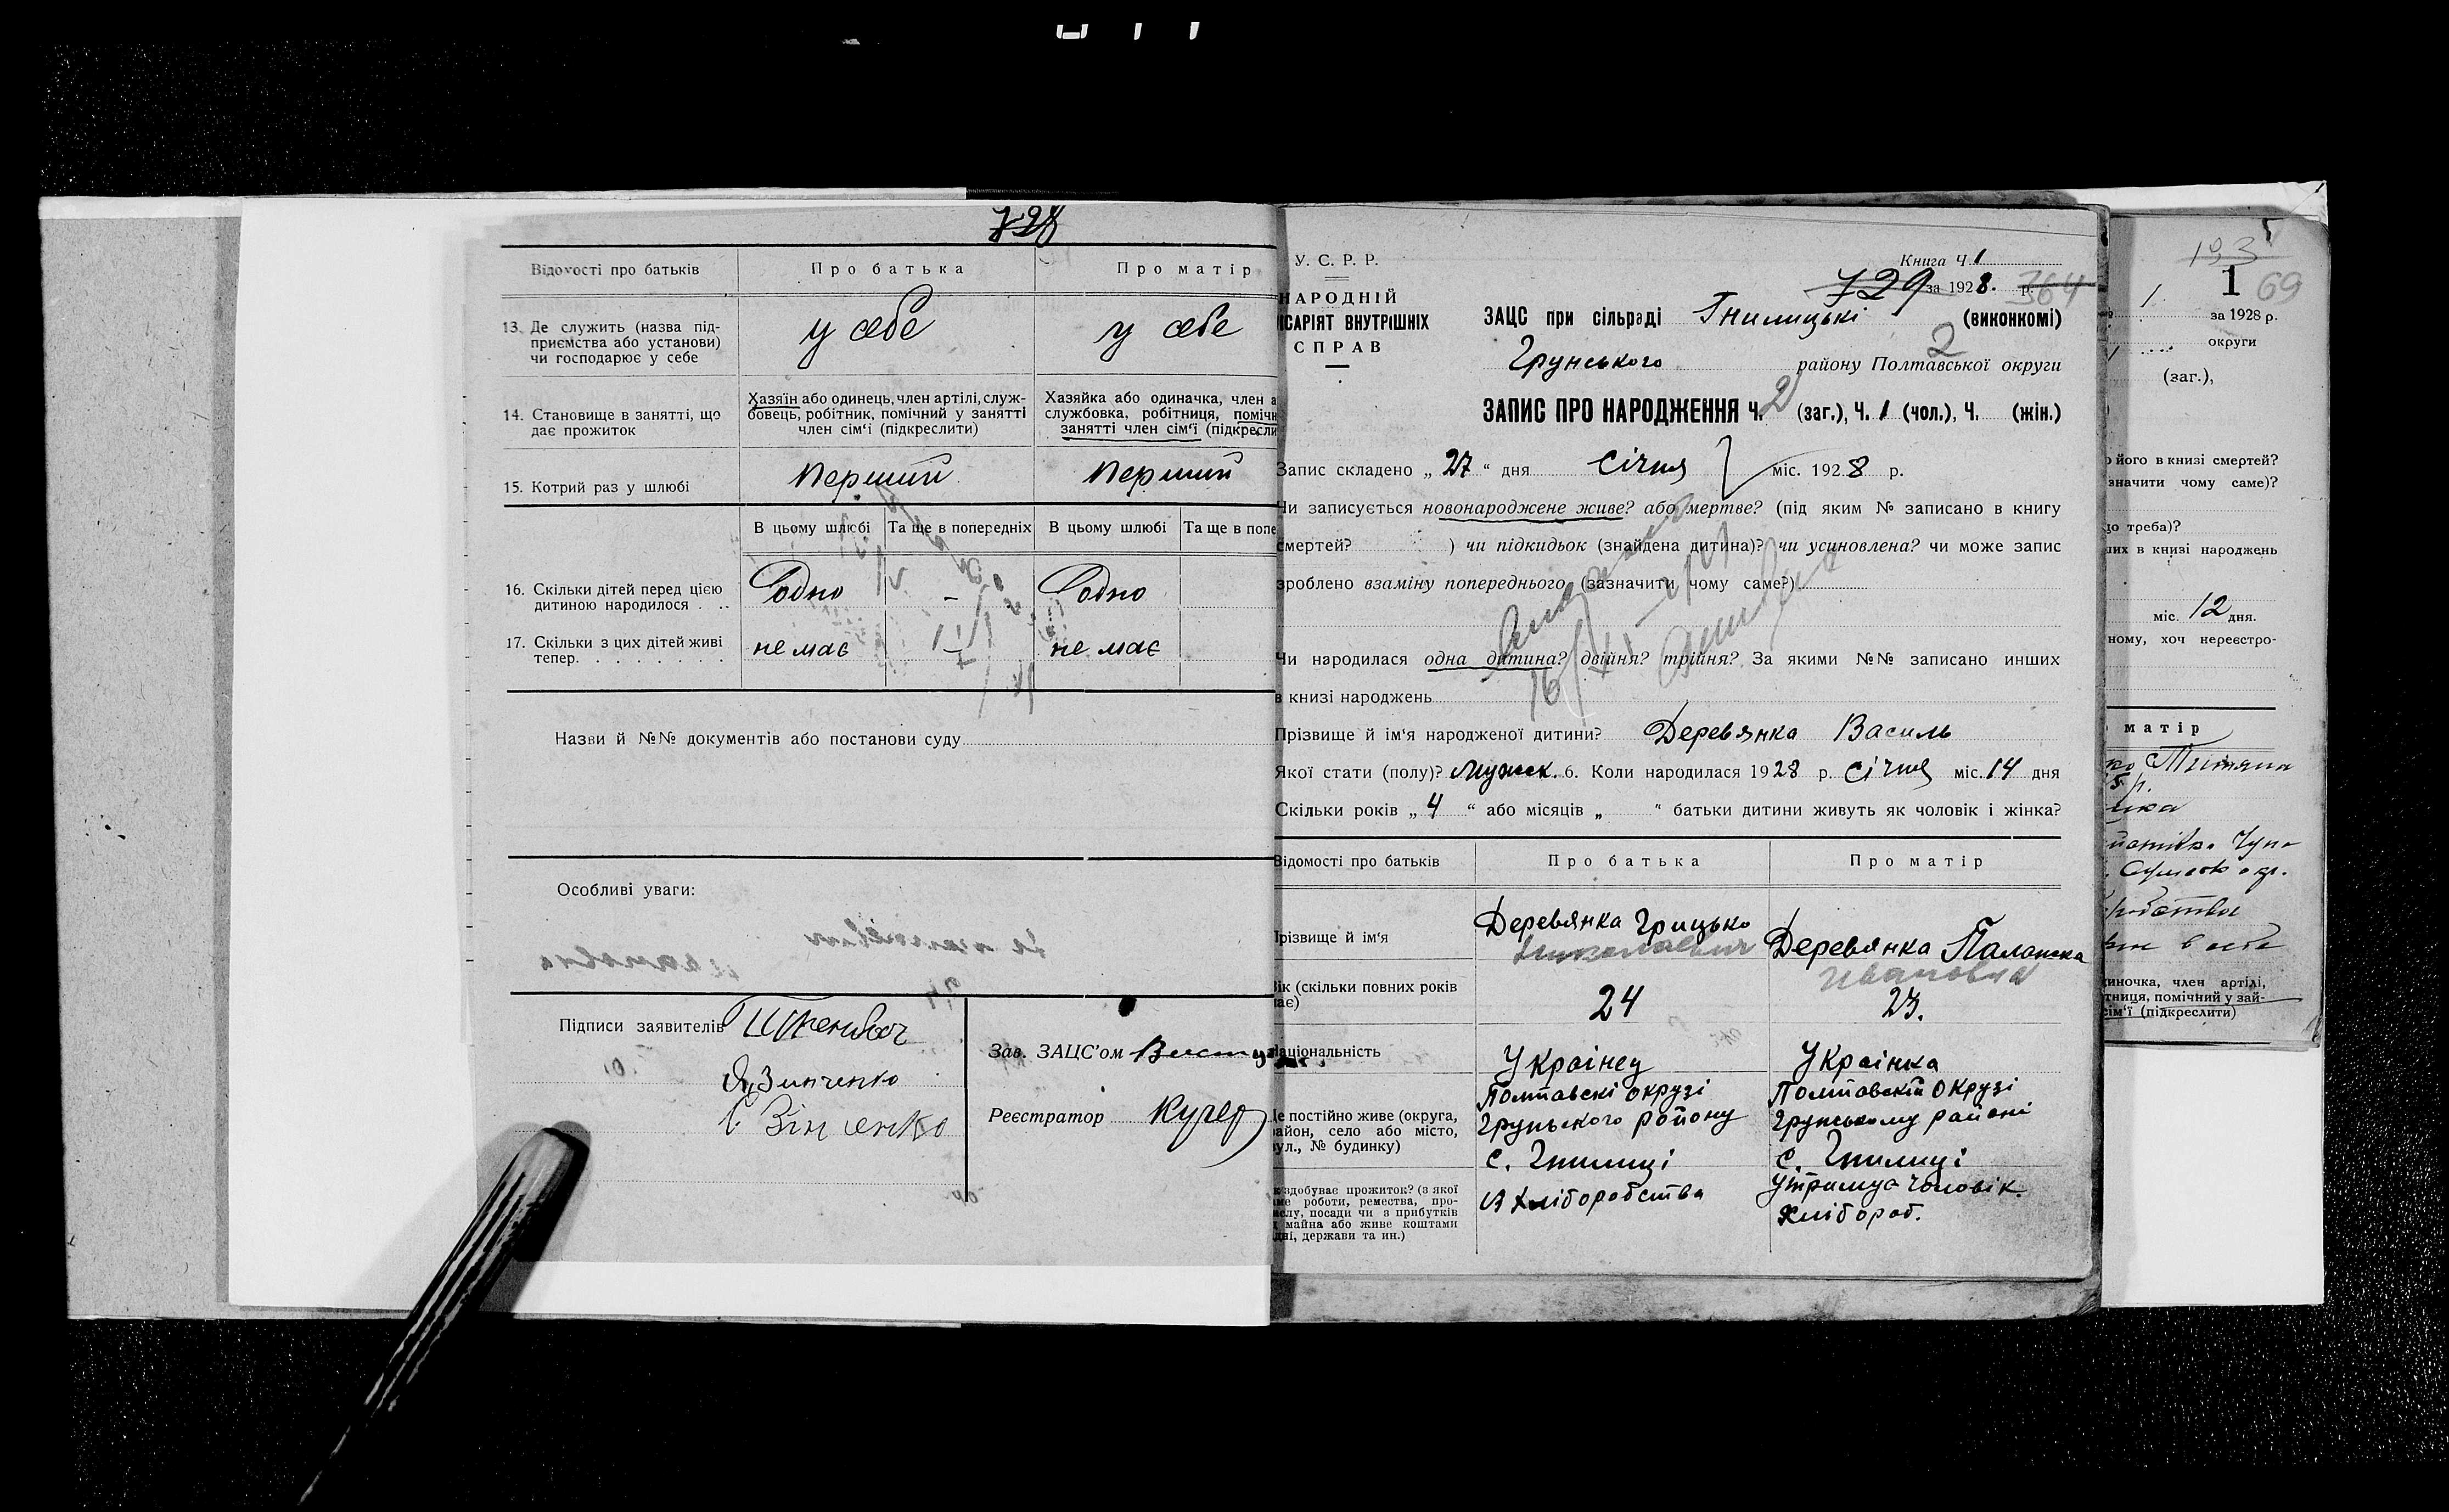 728
Відомості про батьків
Про батька
Про матір
13. Де служить (назва під-
приємства або установи)
чи господарює у себе
у себе
у себе
14. Становище в занятті, що
дає прожиток
Хазяїн або одинець, член артілі, служ-
бовець, робітник, помічний у занятті
член сім'ї (підкреслити)
Хазяйка або одиначка, член а
службовка, робітниця, помічн
занятті член сім'ї (підкресли
15. Котрий раз у шлюбі
перший
перший
В цьому шлюбі
Та ще в попередніх
В цьому шлюбі
Та ще в попе
16. Скільки дітей перед цією
дитиною народилося . ..
Одно
–
Одно
17. Скільки з цих дітей живі
тепер. . . . . . . .
не має
не має
Назви й №№ документів або постанови суду
Особливі уваги:
Підписи заявителів
Я, Зинченко
Є Зінченко
Зав. ЗАЦС'ом
Реєстратор Кучер
У. С. Р. Р.
НАРОДНІЙ
ІСАРІЯТ ВНУТРІШНІХ
СПРАВ
Книга Ч 1
729 за 1928. р. 364
ЗАЦС при сільраді Гнилицькі (виконкомі)
2
Грунського району Полтавської округи
ЗАПИС ПРО НАРОДЖЕННЯ Ч. 2 (заг.), Ч. 1 (чол.), Ч. (жін.)
Запис складено „ 27 " дня січня міс. 1928 р.
Чи записується новонароджене живе? або мертве? (під яким № записано в книгу
смертей? ) чи підкидьок (знайдена дитина)? чи усиновлена? чи може запис
зроблено взаміну попереднього (зазначити чому саме?)
Чи народилася одна дитина? двійня? трійня? За якими №№ записано инших
в книзі народжень
Прізвище й ім'я народженої дитини? Деревянка Василь
Якої стати (полу)? мужеск. 6. Коли народилася 1928 р. січня міс. 14 дня
Скільки років „ 4 " або місяців „ " батьки дитини живуть як чоловік і жінка?
Відомості про батьків
Про батька
Про матір
Прізвище й ім'я
Деревянка Грицько
Николаевич
Деревянка Палажка
Ивановна
Вік (скільки повних років
має)
24
23.
Національність
Українец
Українка
Де постійно живе (округа,
район, село або місто,
вул., № будинку)
Полтавскі окрузі
Грунського району
с. Гнилиці
Полтавскій окрузі
Грунському районі
с. Гнилиці
к здобуває прожиток? (з якої
ме роботи, ремества, про-
ислу, посади чи з прибутків
д майна або живе коштами
дні, держави та ин.)
Із Хліборобства
Утримує чоловік.
Хлібороб.
193
1 69
1.
за 1928 р.
округи
(заг.),
о його в книзі смертей?
значити чому саме)?
до треба)?
ших в книзі народжень
міс. 12 дня.
ному, хоч нереєстро-
матір
ко Тітяна
иночка, член артілі,
тниця, помічний у зай-
сім'ї (підкреслити)